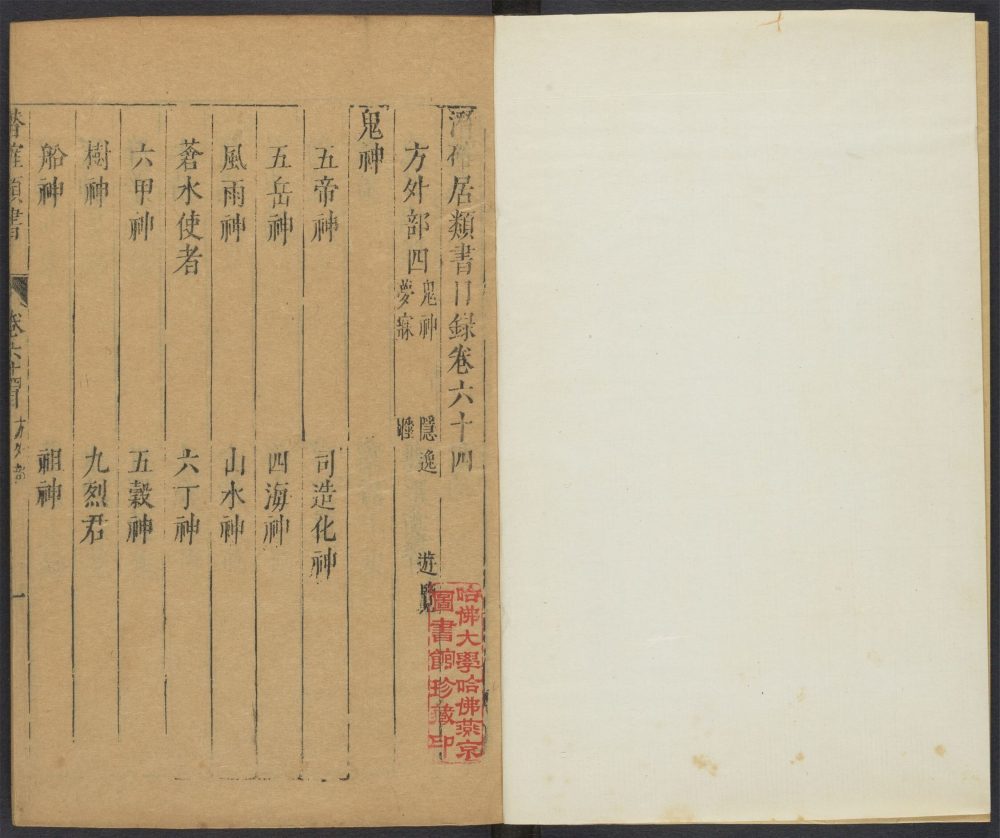 潛確居類書目録卷六十四
方外部四 鬼神 隱逸 遊覽
夢寐 睡
鬼神
五帝神 司造化神
五岳神 四海神
風雨神 山水神
蒼水使者 六丁神
六甲神 五穀神
樹神 九烈君
船神 祖神
潛確類書 卷六十四目 方外部 一
哈佛大學哈佛燕京
圖書館珍藏印